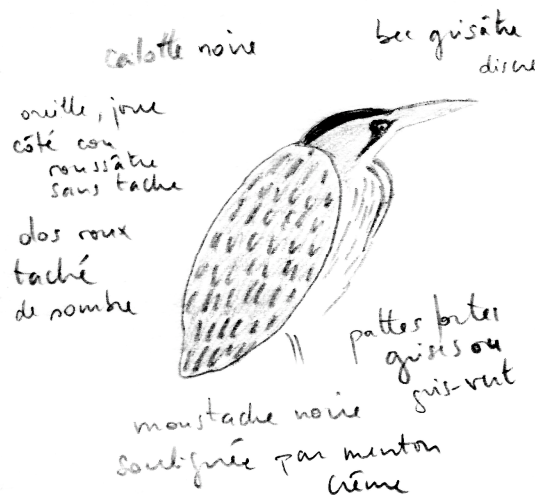 calotte noire
bec grisâtre
oreille, joue
côté cou
roussâtre
sans tache
dos roux
taché
de sombre
pattes fortes
grises ou
gris-vert
moustache noire
soulignée par menton
crème